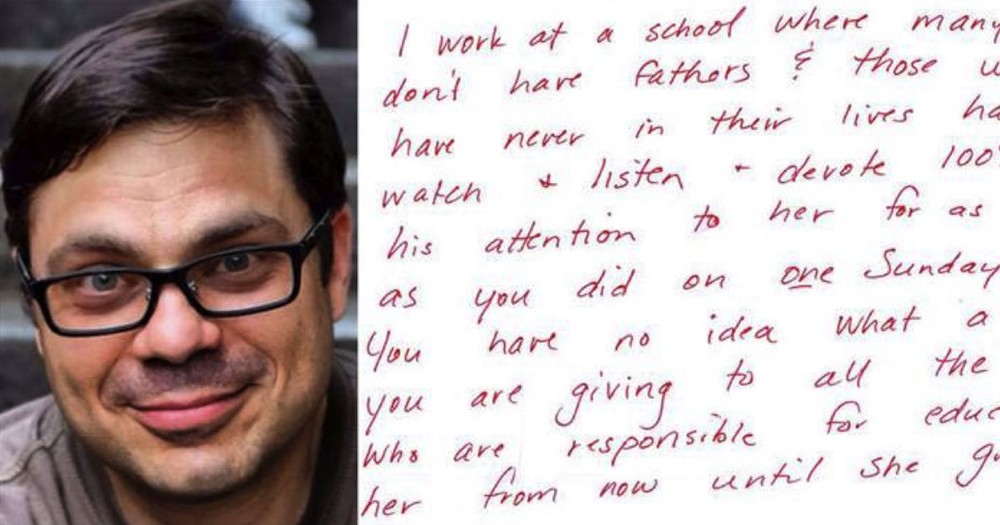 I work at a school where many
don't have fathors & those w
have never in their lives ha
watch & listen + devote 100
his attention to her for as
as you did on one Sunday
You have no idea what a
you are giving to all the
who are responsible for educ
her from now until she g